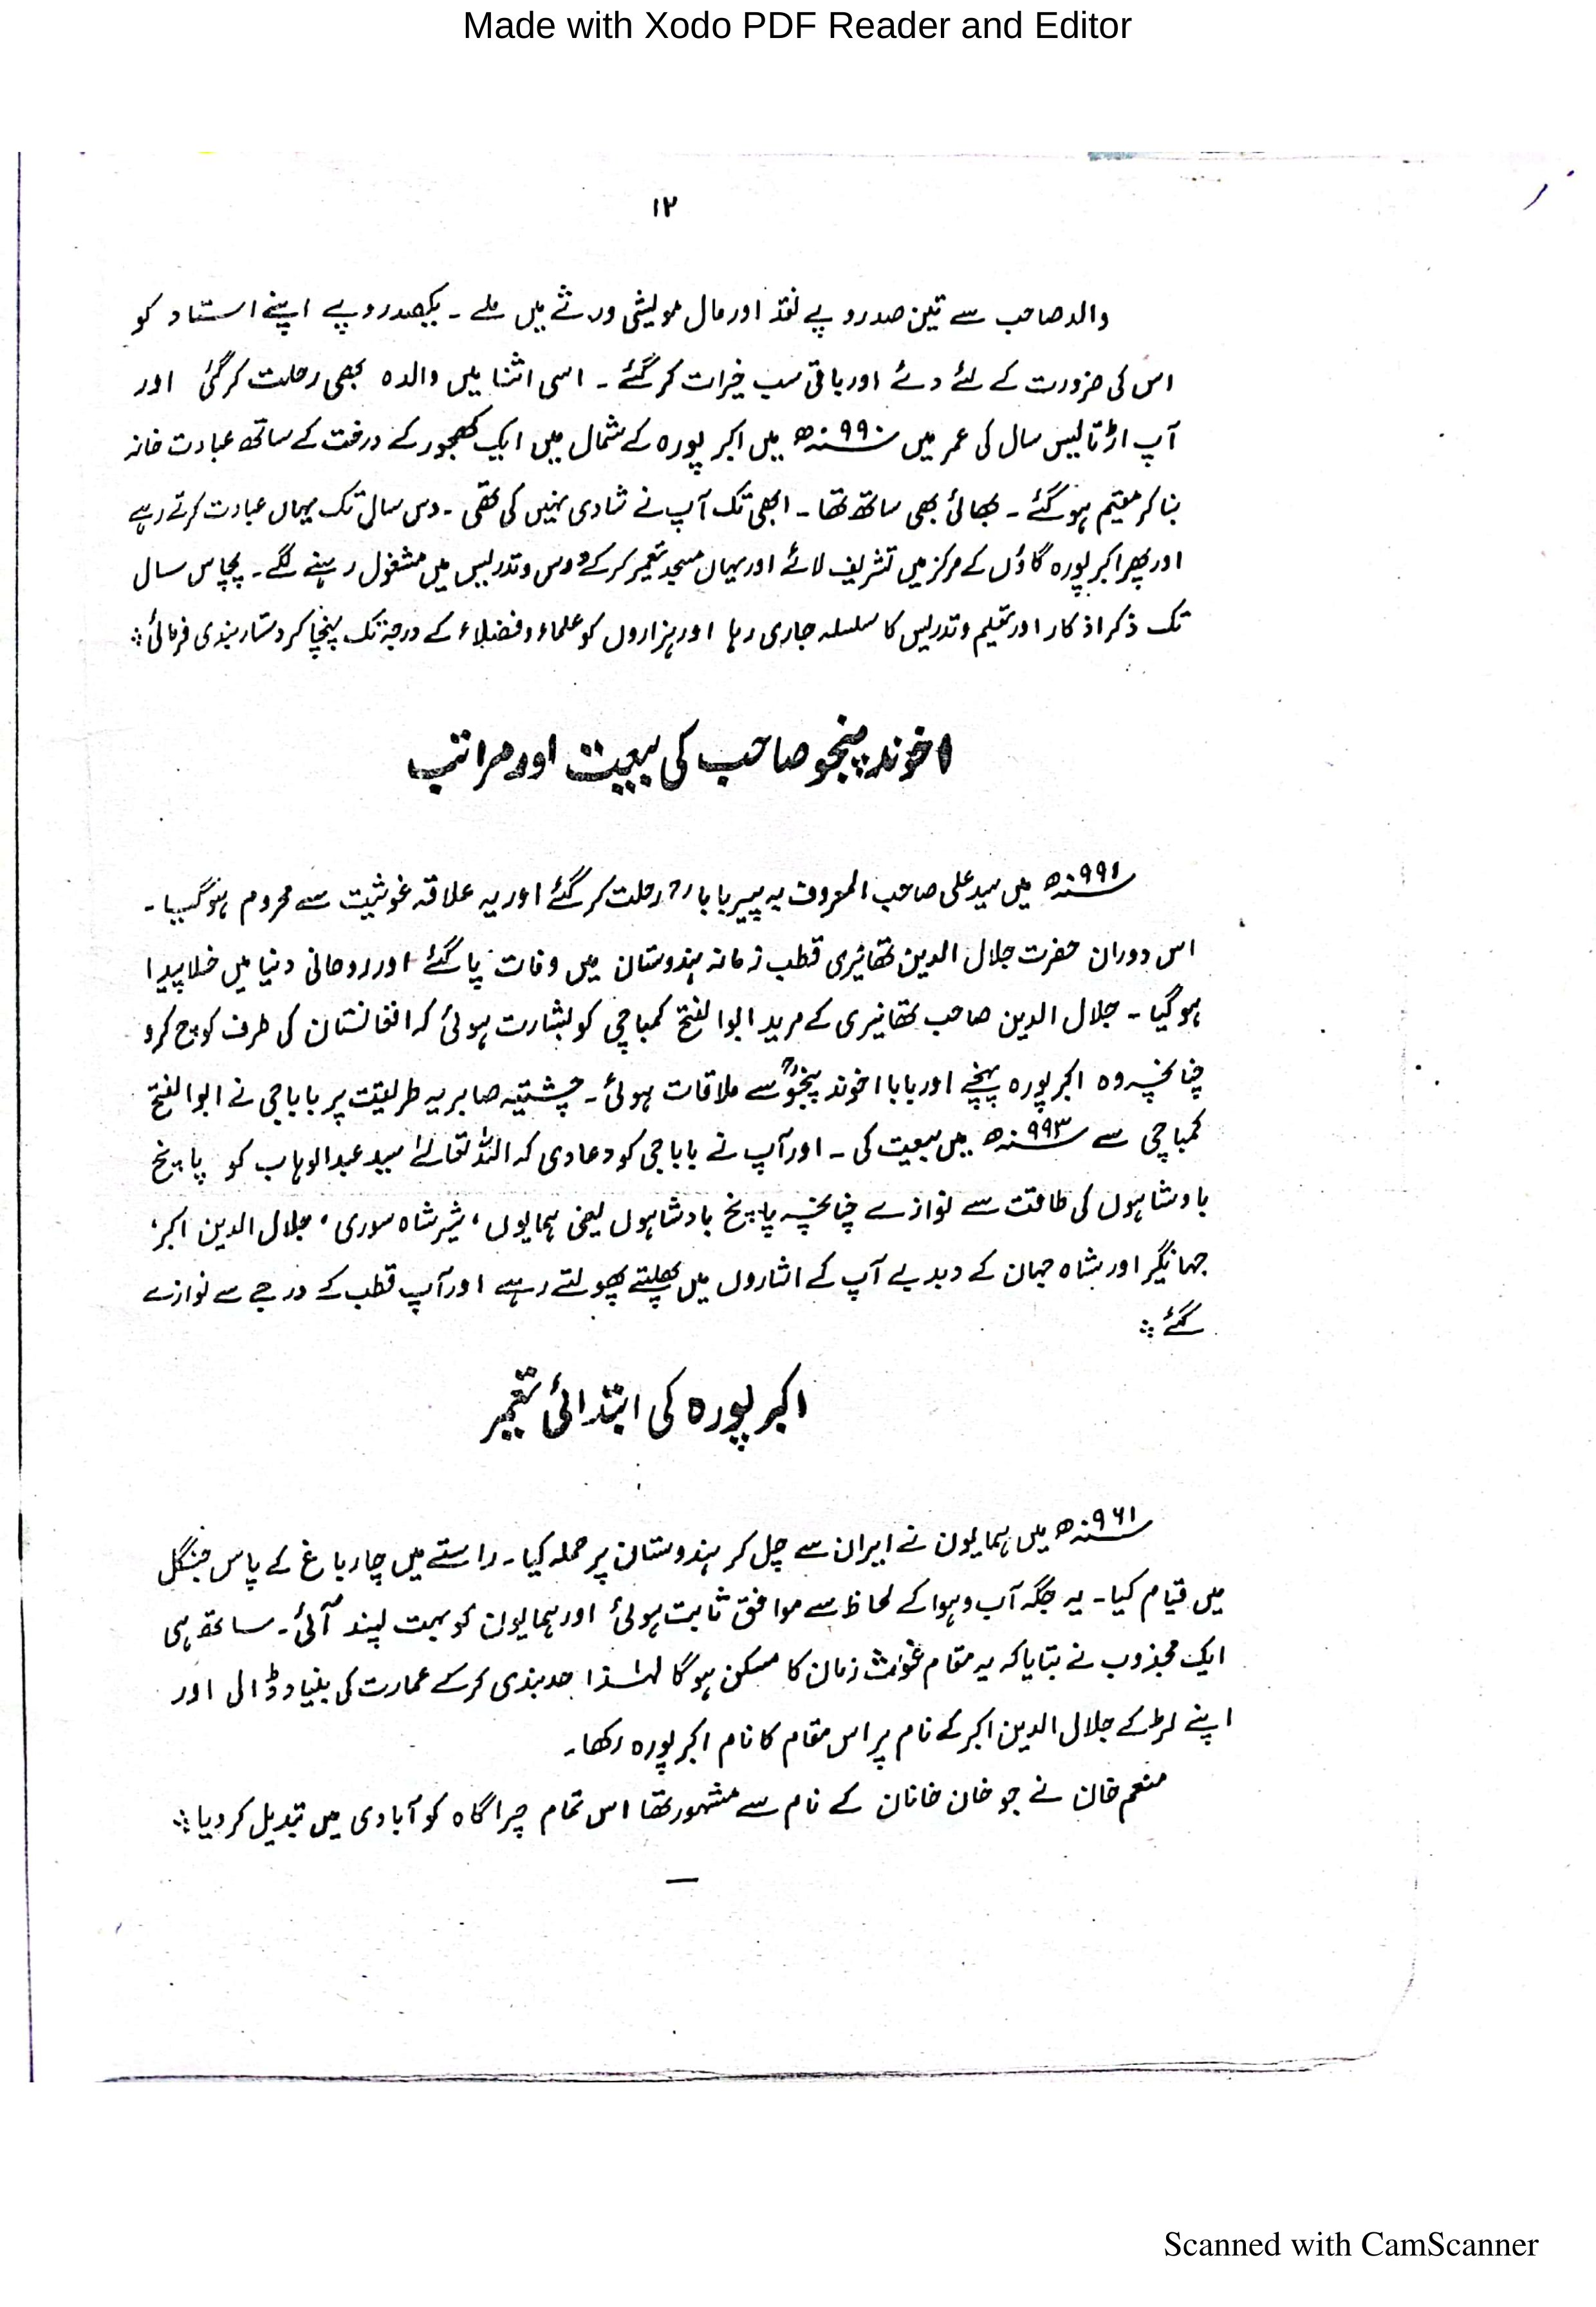 Made with Xodo PDF Reader and Editor
۱۲
والد صاحب سے تین صد روپے نقد اور مال مویشی ورثے میں ملے ۔ یکصد روپے اپنے استاد کو
اس کی ضرورت کے لئے دئے اور باقی سب خیرات کر گئے ۔ اسی اثنا میں والدہ بھی رحلت کر گئی اور
آپ اڑتالیس سال کی عمر میں ۹۹۰ھ میں اکبر پورہ کے شمال میں ایک کھجور کے درخت کے ساتھ عبادت خانہ
بنا کر مقیم ہو گئے ۔ بھائی بھی ساتھ تھا ۔ ابھی تک آپ نے شادی نہیں کی تھی ۔ دس سال تک یہاں عبادت کرتے رہے
اور پھر اکبر پورہ گاؤں کے مرکز میں تشریف لائے اور یہاں مسجد تعمیر کر کے درس و تدریس میں مشغول رہنے لگے ۔ پچاس سال
تک ذکر اذکار اور تعلیم و تدریس کا سلسلہ جاری رہا اور ہزاروں کو علماء و فضلاء کے درجہ تک پہنچا کر دستار بندی فرمائی ؞
اخوند پنجو صاحب کی بیعت اور مراتب
۹۹۱ھ میں سید علی صاحب المعروف بہ پیر بابا رح رحلت کر گئے اور یہ علاقہ غوثیت سے محروم ہو گیا ۔
اس دوران حضرت جلال الدین تھانیری قطب زمانہ ہندوستان میں وفات پا گئے اور روحانی دنیا میں خلا پیدا
ہو گیا ۔ جلال الدین صاحب تھانیری کے مرید ابوالفتح کمباچی کو بشارت ہوئی کہ افغانستان کی طرف کوچ کرو
چنانچہ وہ اکبر پورہ پہنچے اور بابا اخوند پنجوؒ سے ملاقات ہوئی ۔ چشتیہ صابریہ طریقت پر بابا جی نے ابوالفتح
کمباچی سے ۹۹۳ھ میں بیعت کی ۔ اور آپ نے بابا جی کو دعا دی کہ اللہ تعالےٰ سید عبدالوہاب کو پانچ
بادشاہوں کی طاقت سے نوازے چنانچہ پانچ بادشاہوں یعنی ہمایوں ، شیر شاہ سوری ، جلال الدین اکبر ،
جہانگیر اور شاہ جہان کے دبدبے آپ کے اشاروں میں پھلتے پھولتے رہے اور آپ قطب کے درجے سے نوازے
گئے ؞
اکبر پورہ کی ابتدائی تعمیر
۹۶۱ھ میں ہمایون نے ایران سے چل کر ہندوستان پر حملہ کیا ۔ راستے میں چار باغ کے پاس جنگل
میں قیام کیا ۔ یہ جگہ آب و ہوا کے لحاظ سے موافق ثابت ہوئی اور ہمایون کو بہت پسند آئی ۔ ساتھ ہی
ایک مجذوب نے بتایا کہ یہ مقام غوث زمان کا مسکن ہو گا لہٰذا حد بندی کر کے عمارت کی بنیاد ڈالی اور
اپنے لڑکے جلال الدین اکبر کے نام پر اس مقام کا نام اکبر پورہ رکھا ۔
منعم خان نے جو خان خانان کے نام سے مشہور تھا اس تمام چراگاہ کو آبادی میں تبدیل کر دیا ؞
Scanned with CamScanner